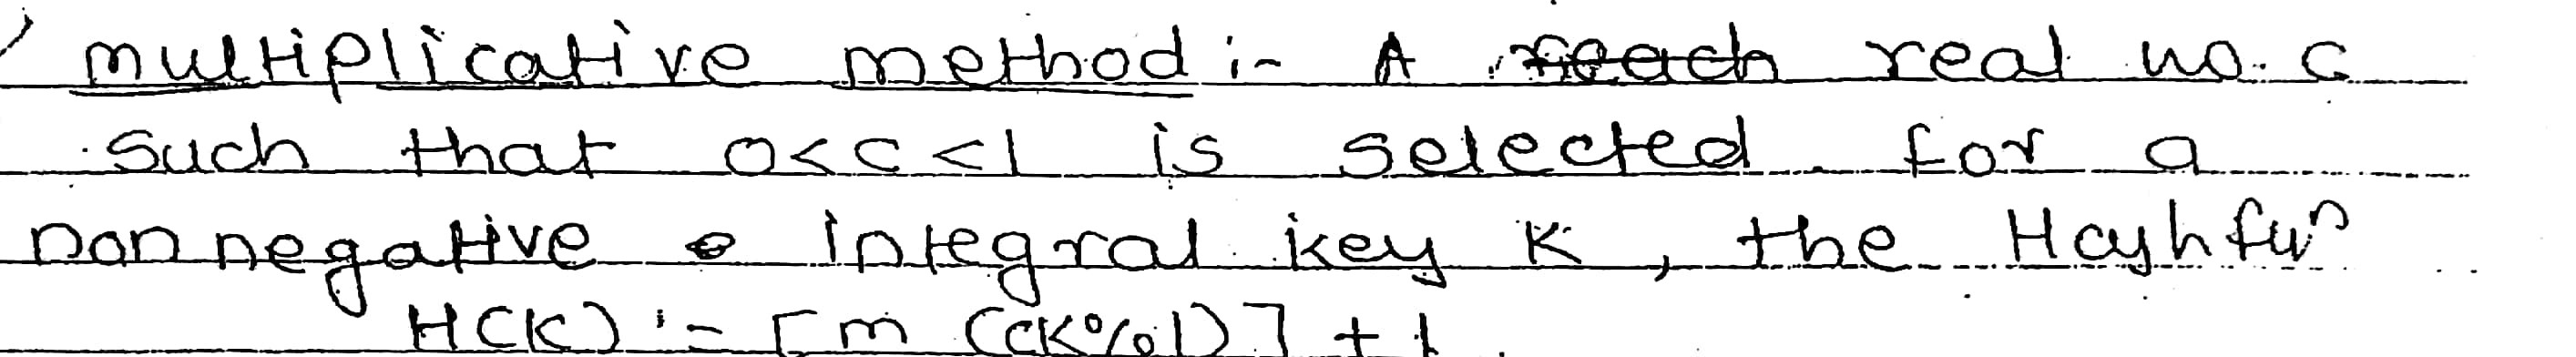 multiplicative method :- A reach real no. c
such that 0<c<1 is selected for a
non negative integral key K, the Hash fun
H(K) = [m (cK%1)] + 1.